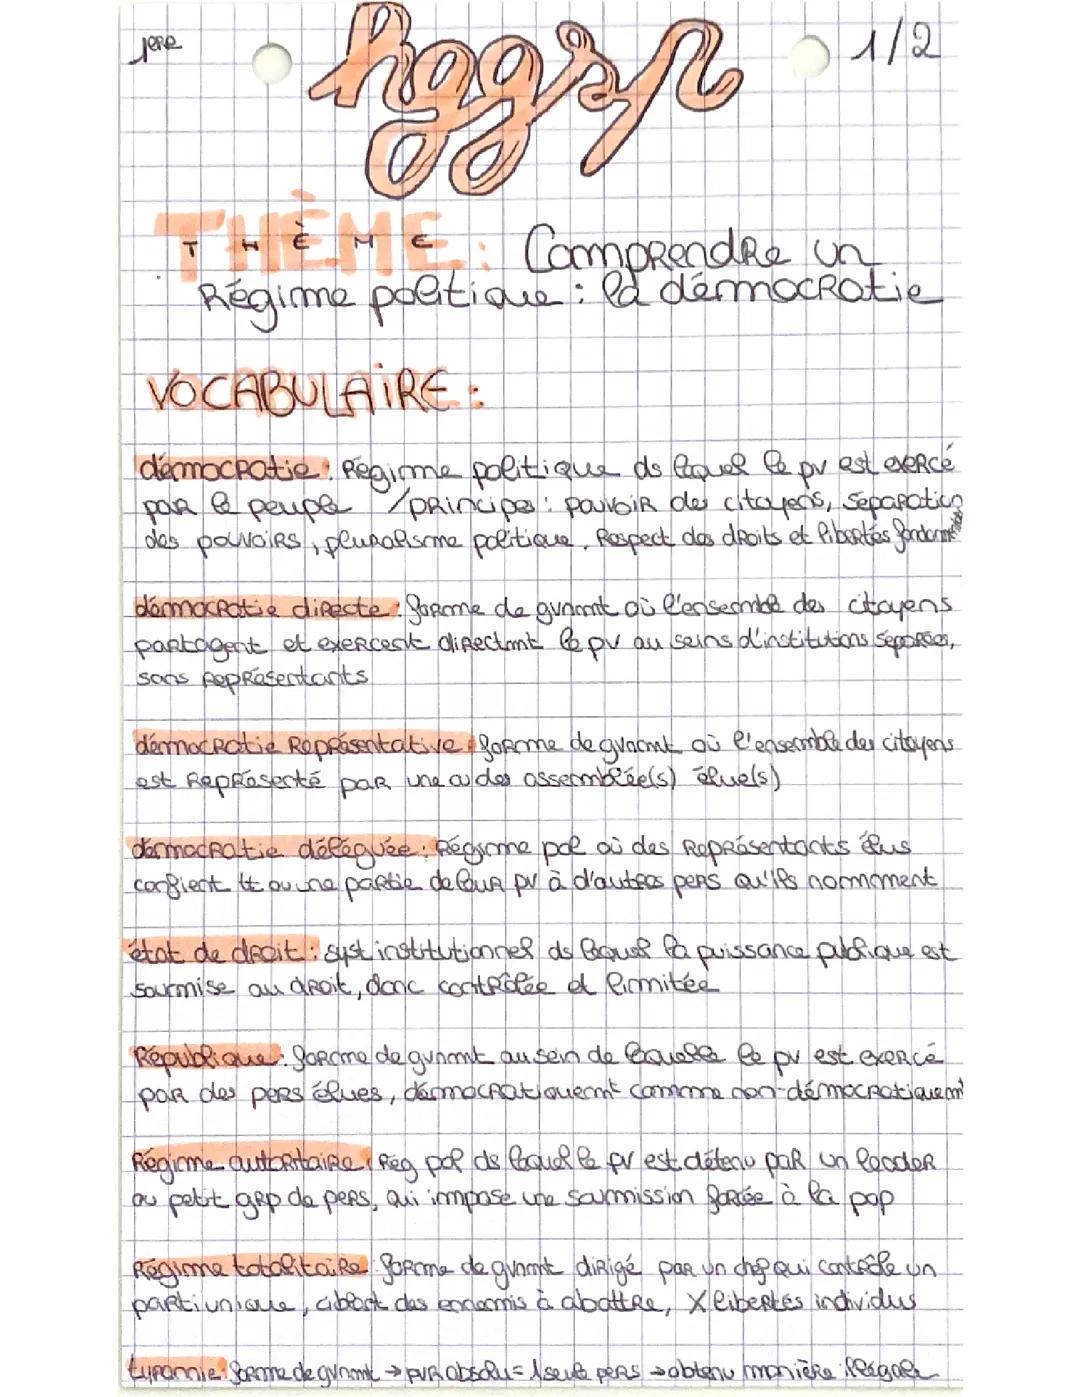 1ère
hggsp
1/2
THÈME : Comprendre un
Régime politique : la démocratie
VOCABULAIRE :
démocratie : Régime politique ds lequel le pv est exercé
par le peuple / principes : pouvoir des citoyens, séparation
des pouvoirs, pluralisme politique, Respect des droits et libertés fondamt
démocratie directe : forme de gvnmt où l'ensemble des citoyens
partagent et exercent directmt le pv au seins d'institutions séparées,
sans représentants
démocratie Représentative : forme de gvnmt où l'ensemble des citoyens
est Représenté par une ou des assemblée(s) élue(s)
démocratie déléguée : Régime pol où des Représentants élus
confient tt ou une partie de leur pv à d'autres pers qu'ils nomment
état de droit : syst institutionnel ds lequel la puissance publique est
soumise au droit, donc contrôlée et limitée
République : forme de gvnmt au sein de laquelle le pv est exercé
par des pers élues, démocratiquemt comme non-démocratiquemt
Régime autoritaire : Rég pol ds lequel le pv est détenu par un leader
ou petit grp de pers, qui impose une soumission forcée à la pop
Régime totalitaire : forme de gvnmt dirigé par un chef qui contrôle un
parti unique, ciblant des ennemis à abattre, X libertés individus
tyrannie : forme de gvnmt → pvr absolu = 1 seule pers → obtenu manière illégale